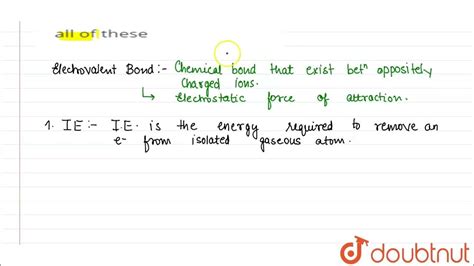 all of these
Electrovalent Bond:- Chemical bond that exist betⁿ oppositely
charged ions.
↳ Electrostatic force of attraction.
1. IE:- I.E. is the energy required to remove an
e⁻ from isolated gaseous atom.
doubtnut